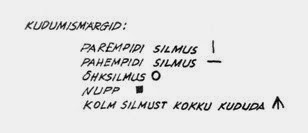 KUDUMISMÄRGID:
PAREMPIDI SILMUS |
PAHEMPIDI SILMUS —
ÕHKSILMUS O
NUPP ■
KOLM SILMUST KOKKU KUDUDA ⋀